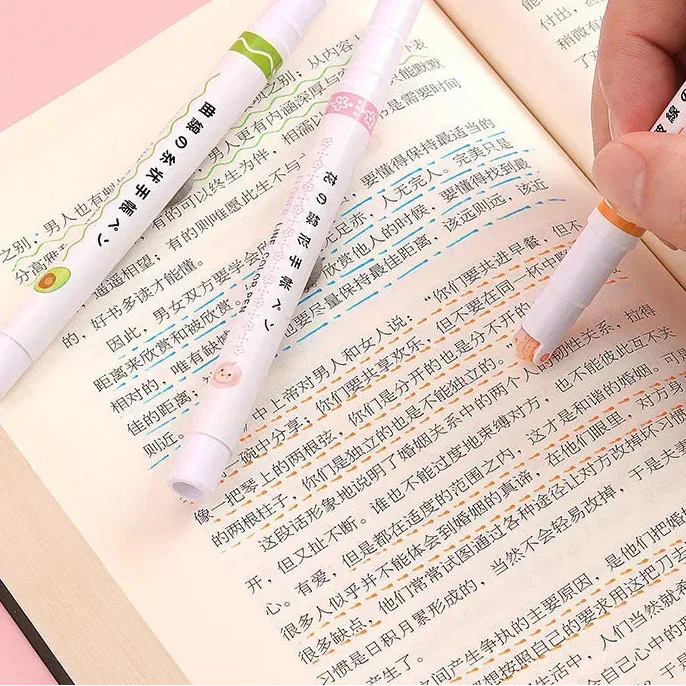 之别；从内容
只能默默
之别；男人也有
男人更有内涵深厚与
是需要时间
分高雅
有的可以终生为伴，相濡以
要懂得保持最适当的
遥遥相望；有的则唯愿此生不与
无足赤，人无完人。完美只是
的，好书多读才能懂。
欣赏他人的时候，要懂得找到最
因此，男女双方要学会
要尽量保持最佳距离，该远则远，该近
距离来欣赏和被欣赏。
相对的，唯有缺
“你们要共进早餐，但不
佳的距离，
中上帝对男人和女人说：
但不要在同一杯中
则近。
一碗中分享；你们要共享欢乐，
像一把琴上的两根弦，你们是分开的也是分不开的
韧性关系，拉得
的两根柱子，你们是独立的也是不能独立的。
这段话形象地说明了婚姻关系中的两个人的
也不能彼此互不关
开，但又扯不断。谁也不能过度地束缚对方，
这才是和谐的婚姻。可是
心。有爱，但是都在适度的范围之内，
在他们眼里，对方身
很多人似乎并不能体会到婚姻的真谛，
很多缺点，他们常常试图通过各种途径让对方改掉坏习惯
习惯是日积月累形成的，当然不会轻易改掉，于是夫妻
产生了。
间产生争执的主要原因，是他们把婚
都想按照自己的要求用这把刀去
生活中，人们当然就希
会自己心中的理
曲線の糸状手帳ペン
花の線形手帳ペン
線の